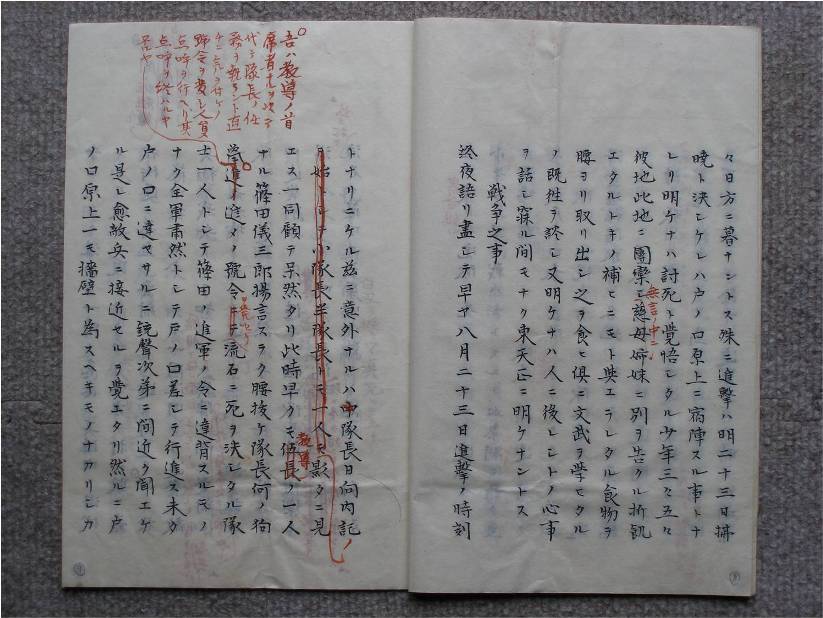 々日方ニ暮ナントス殊ニ進撃ハ明二十三日拂
暁ト決シケレハ戸ノ口原上ニ宿陣スル事トナ
レリ明ケナハ討死ト覚悟シタル少年三々五々
彼地此地ニ團欒シ慈母姉妹ニ別ヲ告クル折飢
無言ノ中ニ
エタルトキノ補ヒニモト與エラレタル食物ヲ
腰ヨリ取リ出シ之ヲ食ヒ俱ニ文武ヲ学ヒタル
ノ既往ヲ談シ又明ケナハ人ニ後レシトノ心事
ヲ話シ寐ル間モナク東天正ニ明ケナントス
戦争之事
終夜語リ盡シテ早ヤ八月二十三日進撃ノ時刻
トナリニケル茲ニ意外ナルハ中隊長日向内記ノ
ヲ始トシテ小隊長半隊長トニ一人モ影タニ見
エス一同顧テ呆然タリ此時早クモ伍長ノ一人
教導
ナル篠田儀三郎揚言スラク腰抜ケ隊長何ノ狗
吾ハ教導ノ首
席者ナルヲ次テ
代テ隊長ノ任
務ヲ執ラント直
号令ヲ発シ人員
点呼ヲ行ヘリ其
点呼ヲ終ハルヤ
進メノ號令
流石ニ死ヲ決シタル隊
士一人トシテ篠田ノ進軍ノ令ニ違背スルモノ
ナク全軍粛然トシテ戸ノ口差シテ行進ス未タ
戸ノ口ニ達セサルニ銃聲次第ニ間近ク聞エケ
ル是レ愈敵兵ニ接近セルヲ覺エタリ然ルニ戸
ノ口原上一モ墻壁ト為スヘキモノナカリシカ